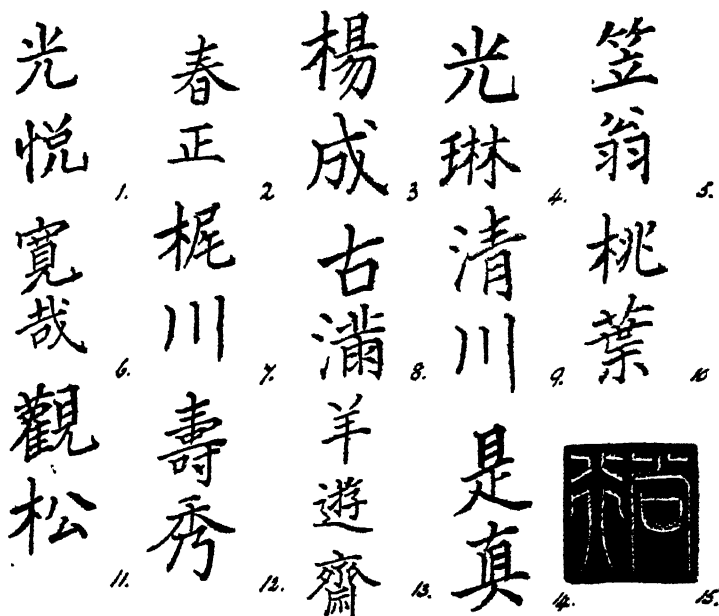 光悦 1.
春正 2
楊成 3
光琳 4.
笠翁 5.
寛哉 6.
梶川 7.
古滿 8.
清川 9.
桃葉 10
觀松 11.
壽秀 12.
羊遊齋 13.
是真 14.
15.